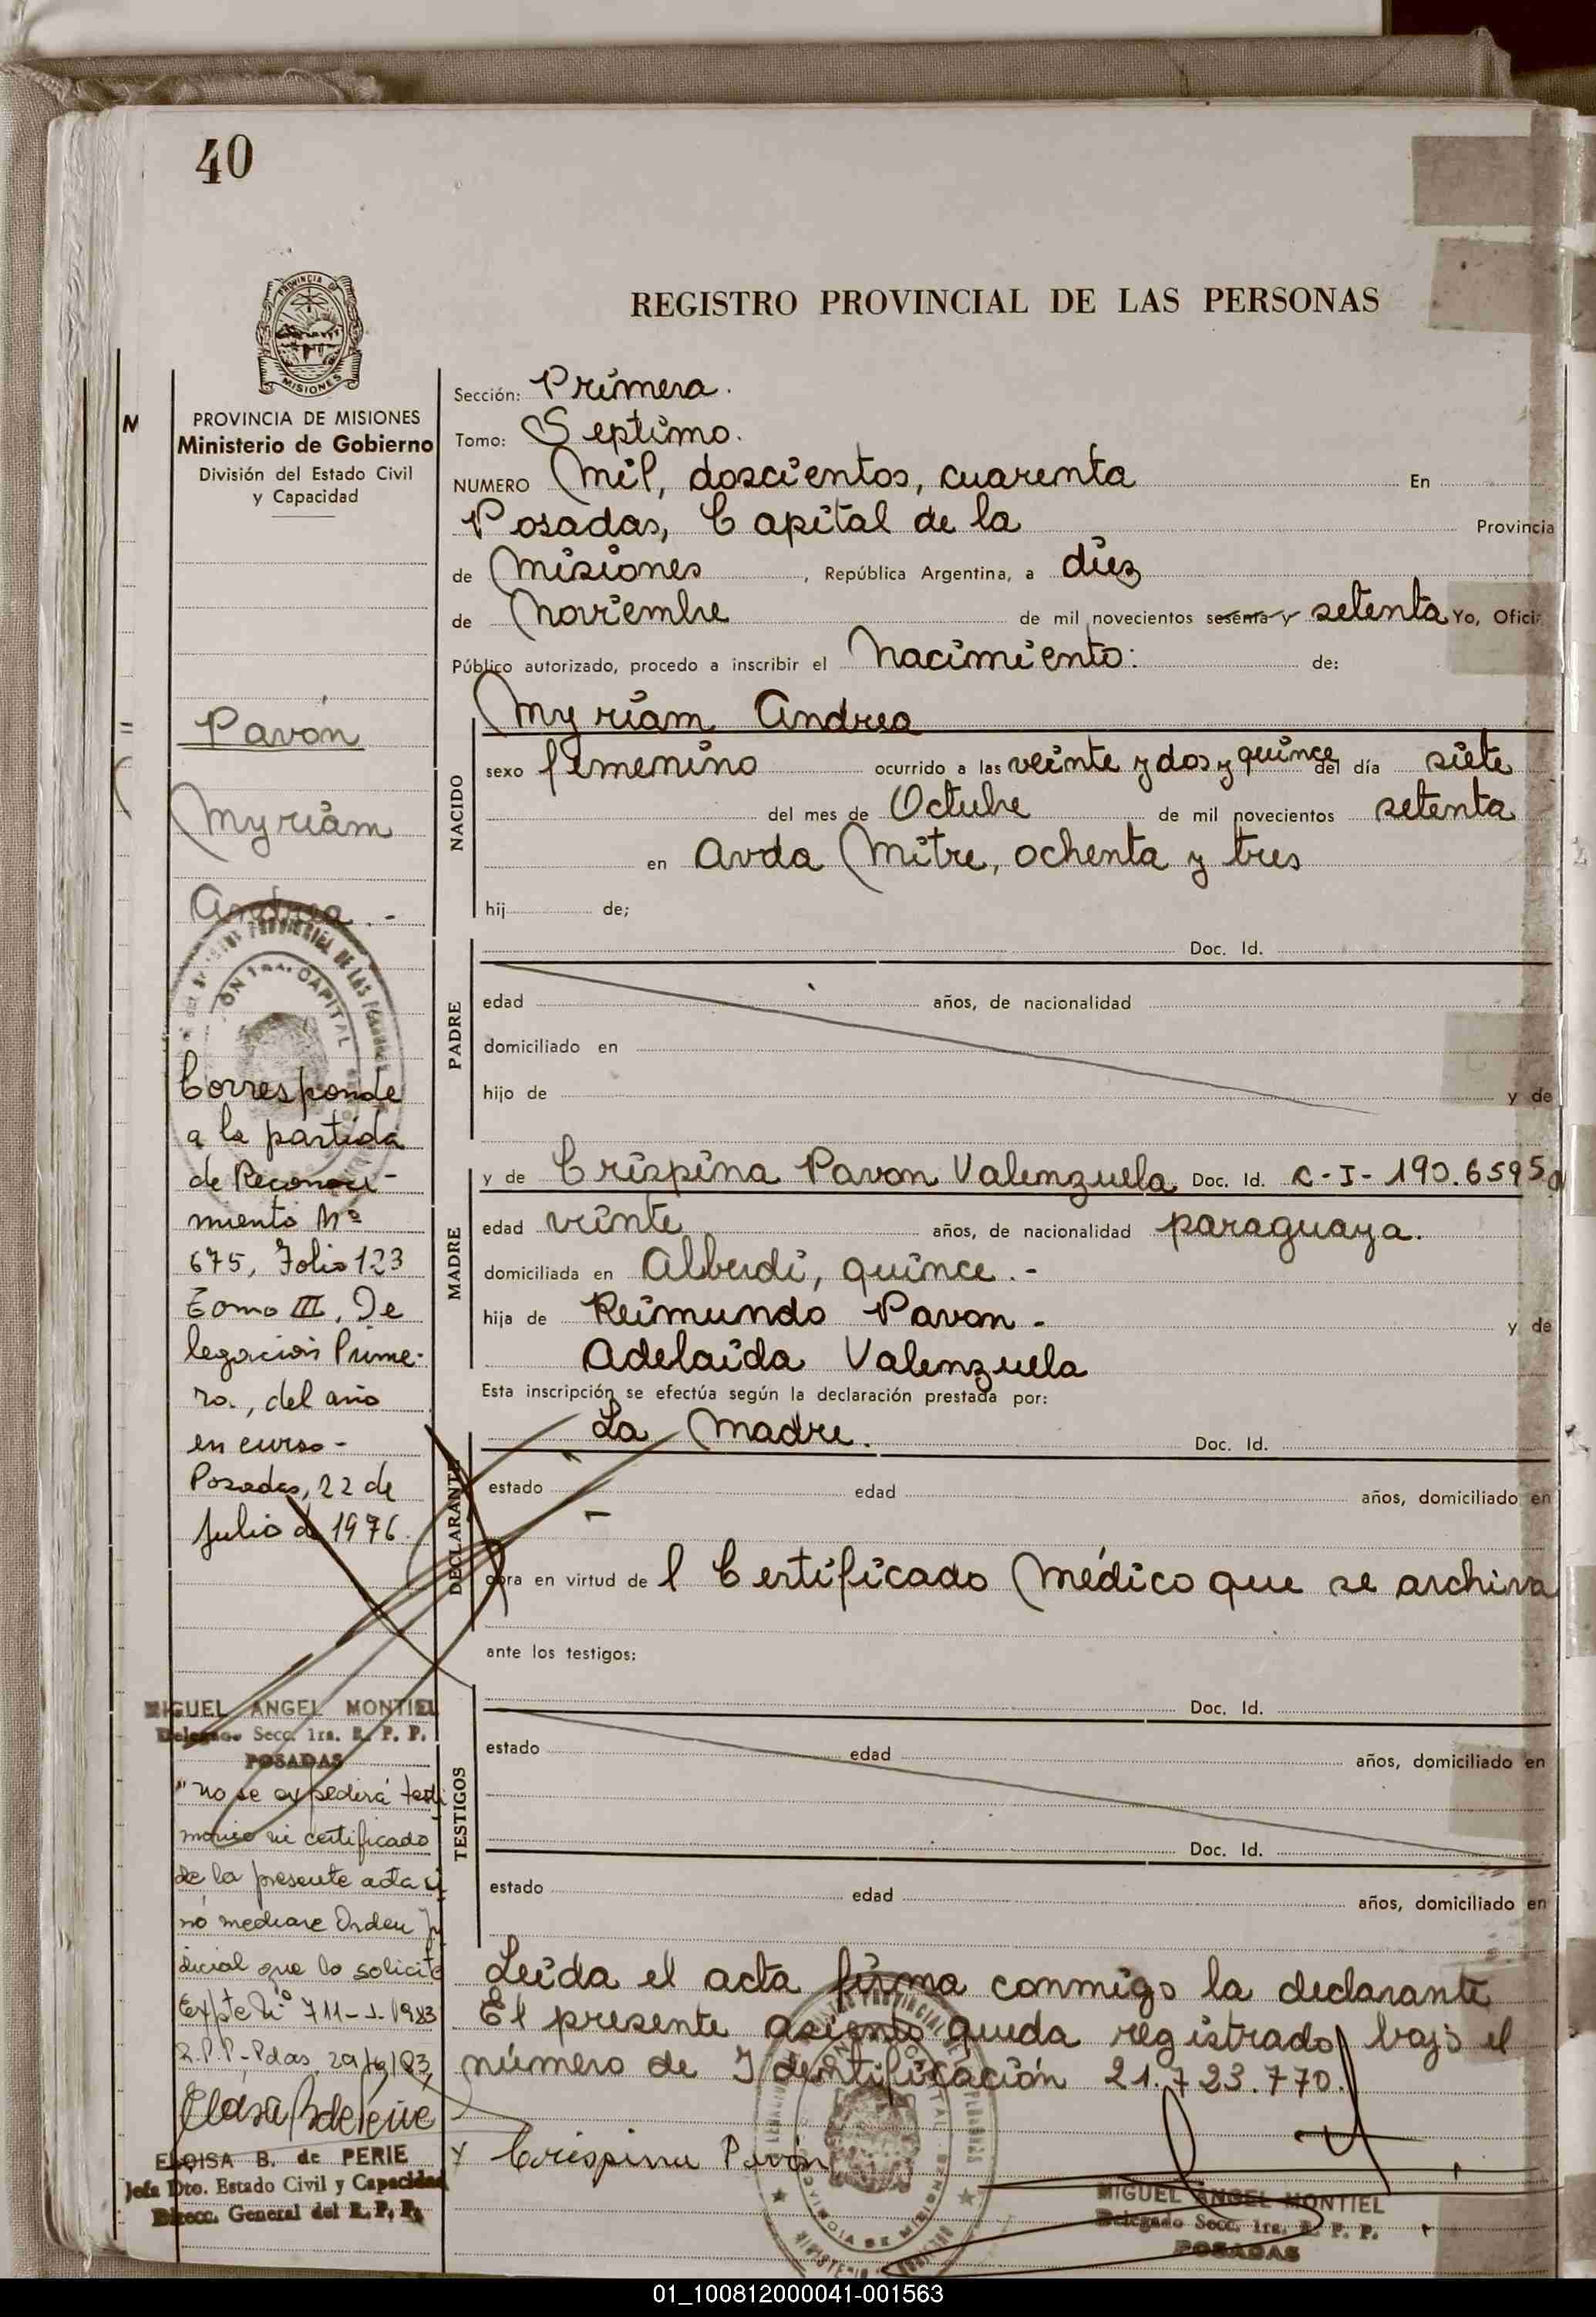 40
PROVINCIA DE
MISIONES
REGISTRO PROVINCIAL DE LAS PERSONAS
PROVINCIA DE MISIONES
Ministerio de Gobierno
División del Estado Civil
y Capacidad
Sección: Primera.
Tomo: Septimo.
NUMERO Mil, doscientos, cuarenta En
Posadas, Capital de la Provincia
de Misiones, República Argentina, a diez
de Noviembre de mil novecientos sesenta y setenta Yo, Ofici
Público autorizado, procedo a inscribir el Nacimiento: de:
Myriam Andrea
NACIDO
sexo femenino ocurrido a las veinte y dos y quince del día siete
del mes de Octubre de mil novecientos setenta
en Avda Mitre, ochenta y tres
hij de;
PADRE
Doc. Id.
edad años, de nacionalidad
domiciliado en
hijo de y de
MADRE
y de Crispina Pavon Valenzuela Doc. Id. C-I-190.6595
edad veinte años, de nacionalidad paraguaya.
domiciliada en Alberdi, quince.-
hija de Reimundo Pavon - y de
Adelaida Valenzuela
Esta inscripción se efectúa según la declaración prestada por:
DECLARANTE
La Madre. Doc. Id.
estado edad años, domiciliado en
obra en virtud de l Certificado Médico que se archiva
ante los testigos:
TESTIGOS
Doc. Id.
estado edad años, domiciliado en
Doc. Id.
estado edad años, domiciliado en
Leida el acta firma conmigo la declarante
El presente asiento queda registrado bajo el
número de Identificación 21.723.770.
Crispina Pavón
MIGUEL ANGEL MONTIEL
Delegado Secc. 1ra. R. P. P.
POSADAS
Pavón
Myriam
Andrea.-
Corresponde
a la partida
de Reconoci-
miento Nº
675, Folio 123
Tomo III, De
legación Prime-
ra., del año
en curso-
Posadas, 22 de
Julio de 1976.
MIGUEL ANGEL MONTIEL
Delegado Secc. 1ra. R. P. P.
POSADAS
"no se expedirá testi
monio ni certificado
de la presente acta si
no mediare Orden Ju
dicial que lo solicite
Expte Nº 711-J-1983
R.P.P-Pdas,
ELOISA B. de PERIE
Jefa Dto. Estado Civil y Capacidad
Direcc. General del R. P. P.
01_100812000041-001563